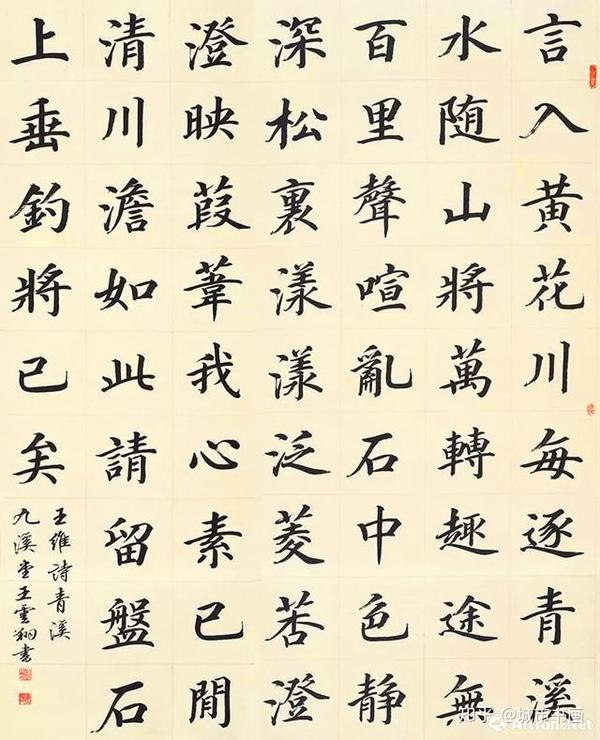 言入黄花川每逐青溪
水随山將萬轉趣途無
百里聲喧亂石中色靜
深松裏漾漾泛菱莕澄
澄映葭葦我心素已閒
清川澹如此請留盤石
上垂釣將已矣
王維詩青溪
九溪堂王雲翔書
知乎 @城市书画
Artron.Net